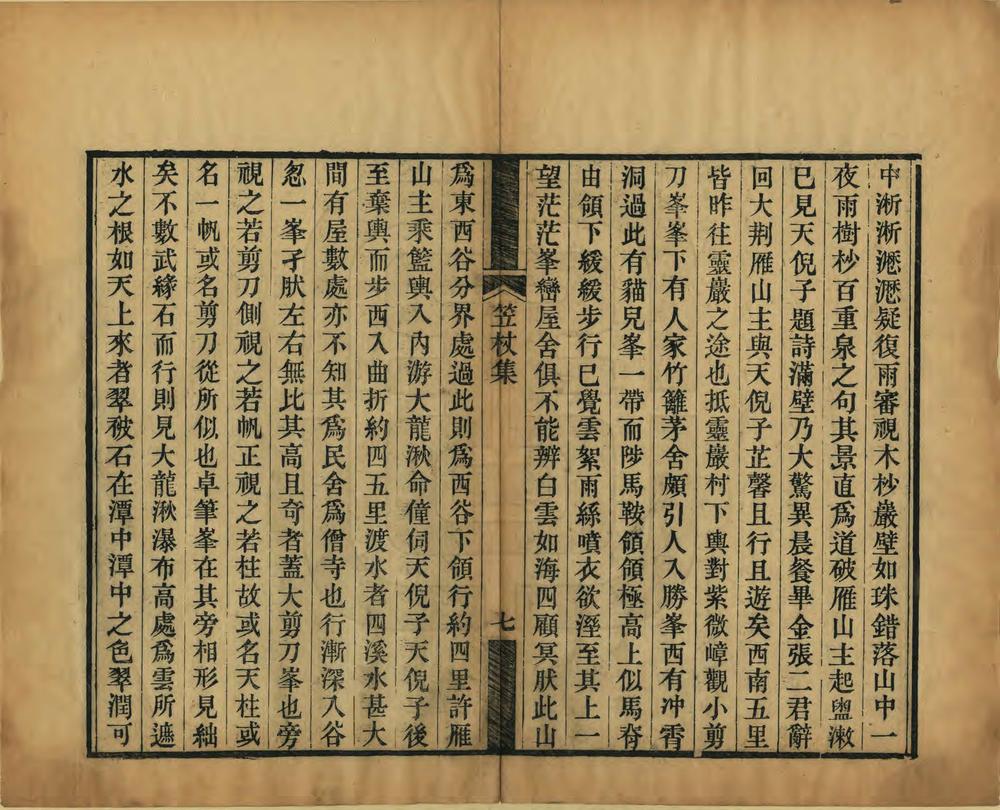 中淅淅瀝瀝疑復雨審視木杪巖壁如珠錯落山中一
夜雨樹杪百重泉之句其景直爲道破雁山主起盥漱
巳見天倪子題詩滿壁乃大驚異晨餐畢金張二君辭
回大荆雁山主與天倪子芷馨且行且遊矣西南五里
皆昨往靈巖之途也抵靈巖村下輿對紫微嶂觀小剪
刀峯峯下有人家竹籬茅舍頗引人入勝峯西有冲霄
洞過此有貓兒峯一帶而陟馬鞍領領極高上似馬脊
由領下緩緩步行巳覺雲絮雨絲噴衣欲溼至其上一
望茫茫峯巒屋舍俱不能辨白雲如海四顧冥肰此山
笠杖集
七
爲東西谷分界處過此則爲西谷下領行約四里許雁
山主乘籃輿入內游大龍湫命僮伺天倪子天倪子後
至棄輿而步西入曲折約四五里渡水者四溪水甚大
間有屋數處亦不知其爲民舍爲僧寺也行漸深入谷
忽一峯孑肰左右無比其高且奇者蓋大剪刀峯也旁
視之若剪刀側視之若帆正視之若柱故或名天柱或
名一帆或名剪刀從所似也卓筆峯在其旁相形見絀
矣不數武緣石而行則見大龍湫瀑布高處爲雲所遮
水之根如天上來者翠被石在潭中潭中之色翠潤可